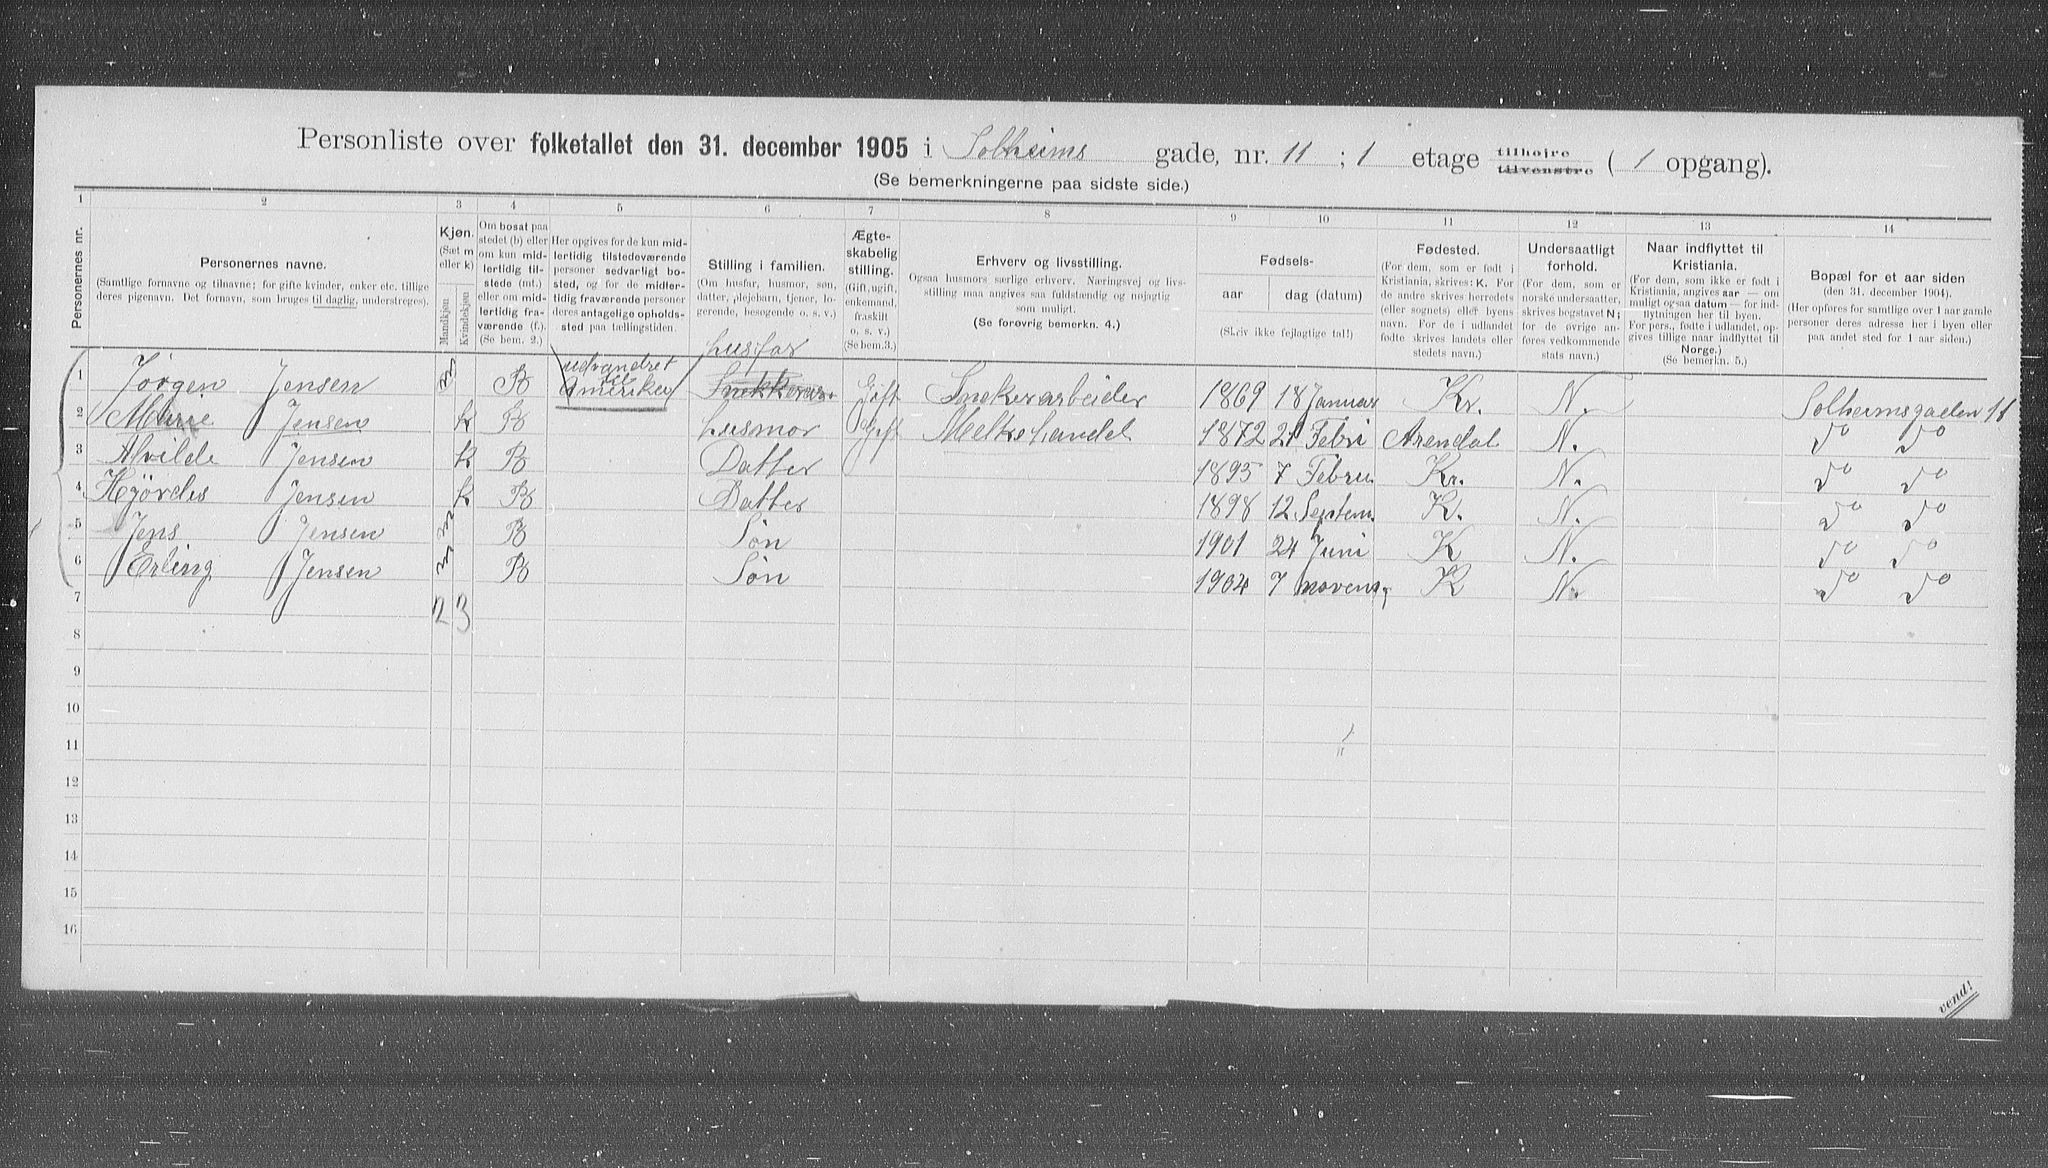 Personliste over folketallet den 31. december 1905 i Solheims gade, nr. 11 ; 1 etage tilhøjre tilvenstre ( 1 opgang).
(Se bemerkningerne paa sidste side.)
1 2 3 4 5 6 7 8 9 10 11 12 13 14
Personernes nr.
Personernes navne.
(Samtlige fornavne og tilnavne; for gifte kvinder, enker etc. tillige
deres pigenavn. Det fornavn, som bruges til daglig, understreges).
Kjøn.
(Sæt m
eller k)
Mandkjøn
Kvindekjøn
Om bosat paa
stedet (b) eller
om kun mid-
lertidig til-
stede (mt.)
eller om mid-
lertidig fra-
værende (f.).
(Se bem. 2.)
Her opgives for de kun mid-
lertidig tilstedeværende
personer sedvarligt bo-
sted, og for de midler-
tidig fraværende personer
deres antagelige opholds-
sted paa tællingstiden.
Stilling i familien.
(Om husfar, husmor, søn,
datter, plejebarn, tjener, lo-
gerende, besøgende o. s. v.)
Ægte-
skabelig
stilling.
(Gift, ugift,
enkemand,
fraskilt
o. s. v.)
(Se bem.3.)
Erhverv og livsstilling.
Ogsaa husmors særlige erhverv. Næringsvej og livs-
stilling maa angives saa fuldstændig og nøjagtig
som muligt.
(Se forøvrig bemerkn. 4.)
Fødsels-
aar
dag (datum)
(Skriv ikke fejlagtige tal!)
Fødested.
(For dem, som er født i
Kristiania, skrives: K. For
de andre skrives herredets
(eller sognets) eller byens
navn. For de i udlandet
fødte skrives landets eller
stedets navn.)
Undersaatligt
forhold.
(For dem, som er
norske undersaatter,
skrives bogstavet N;
for de øvrige an-
føres vedkommende
stats navn.)
Naar indflyttet til
Kristiania.
(For dem, som ikke er født i
Kristiania, angives aar — om
muligt ogsaa datum — for ind-
flytningen her til byen.
For pers., fødte i udlandet, op-
gives tillige naar indflyttet til
Norge.)
(Se bemerkn. 5.)
Bopæl for et aar siden
(den 31. december 1904).
(Her opføres for samtlige over 1 aar gamle
personer deres adresse her i byen eller
paa andet sted for 1 aar siden.)
1 Jørgen Jensen m B udvandret til Amerika husfar Snekkerar. Gift Snekerarbeider 1869 18 Januar Kr. N. Solheimsgaden 11
2 Marie Jensen k B husmor Gift Melkehandel 1872 21 Febri Arendal N. do do
3 Alvilde Jensen k B Datter 1895 7 Febru. Kr. N. do do
4 Hjørdis Jensen k B Datter 1898 12 Septem. K. N. do do
5 Jens Jensen m B Søn 1901 24 Juni K N. do do
6 Erling Jensen m B Søn 1904 7 novem. K N. do do
7 2 3
8
9
10
11
12
13
14
15
16
vend!